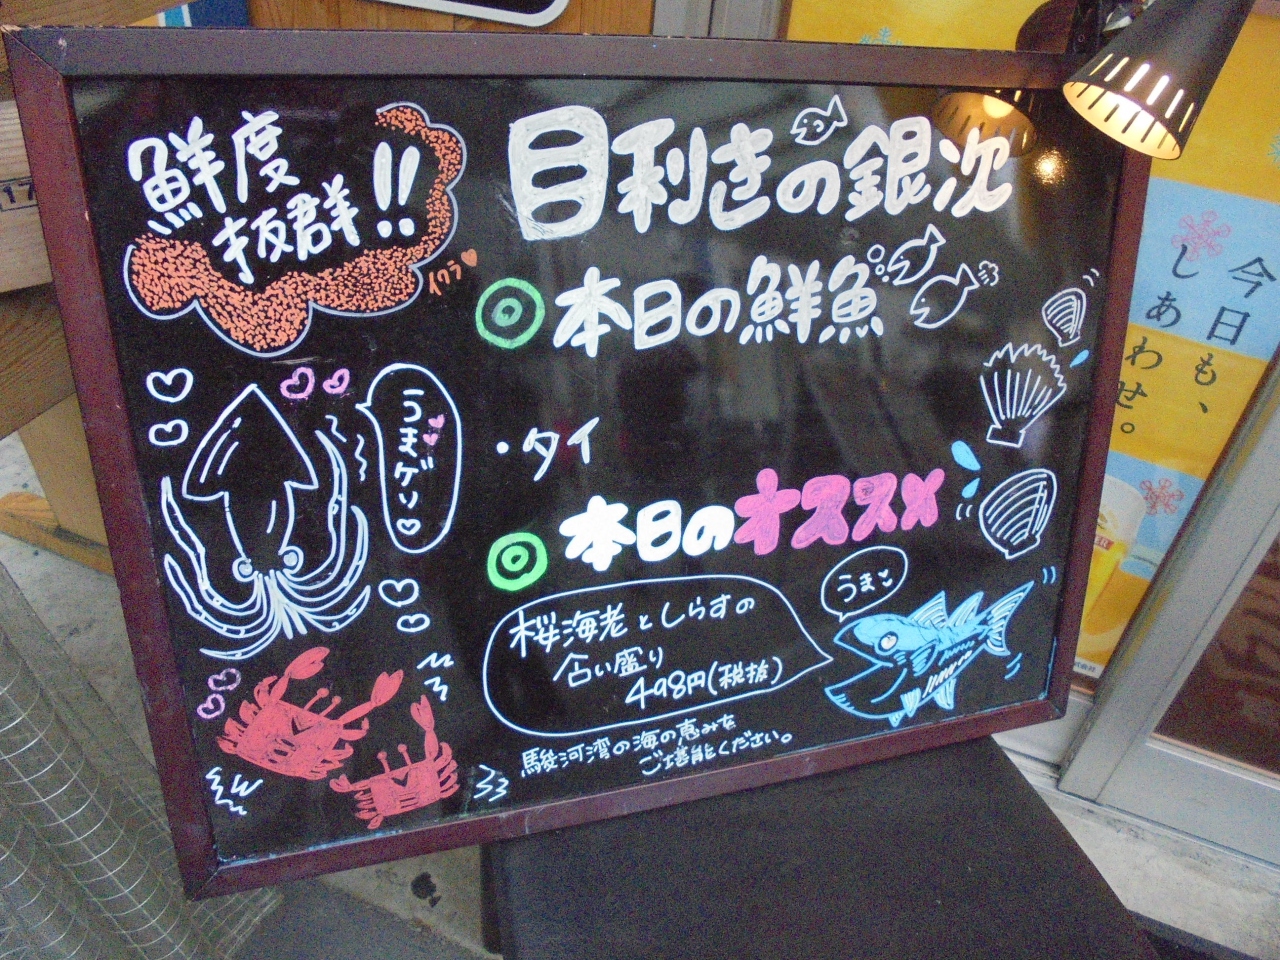 鮮度
抜群!!
イクラ
目利きの銀次
本日の鮮魚
うまゲソ
・タイ
本日のオススメ
うまこ
桜海老としらすの
合い盛り
498円(税抜)
駿河湾の海の恵みを
ご堪能ください。
今日も、
しあわせ。
17